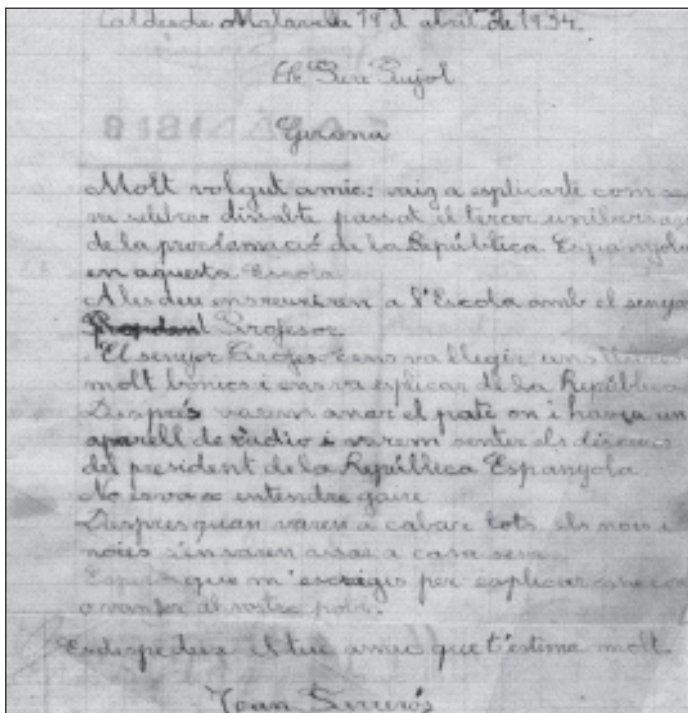 Caldes de Malavella 19 d' abril de 1934.
En Pere Pujol
Girona
Molt volgut amic: vaig a esplicarte com se
va selebrar disabte passat el tercer unibersari
de la proclamació de la República Espanyola
en aquesta Escola.
A les deu ens reunirem a l'Escola amb el senyor
Profesor.
El senyor Profesor ens va llegir uns
molt bonics i ens va esplicar de la República
Després varem anar el pate on i havia un
aparell de radio i varem sentir els discurs
del president de la República Espanyola.
No es va entendre gaire
Despres quan varen a cabar tots els nois i
noies s'en varen anar a casa seva.
Espero que m'escrigis per esplicar
al vostre poble.
el tue amic que t'estima molt.
Joan